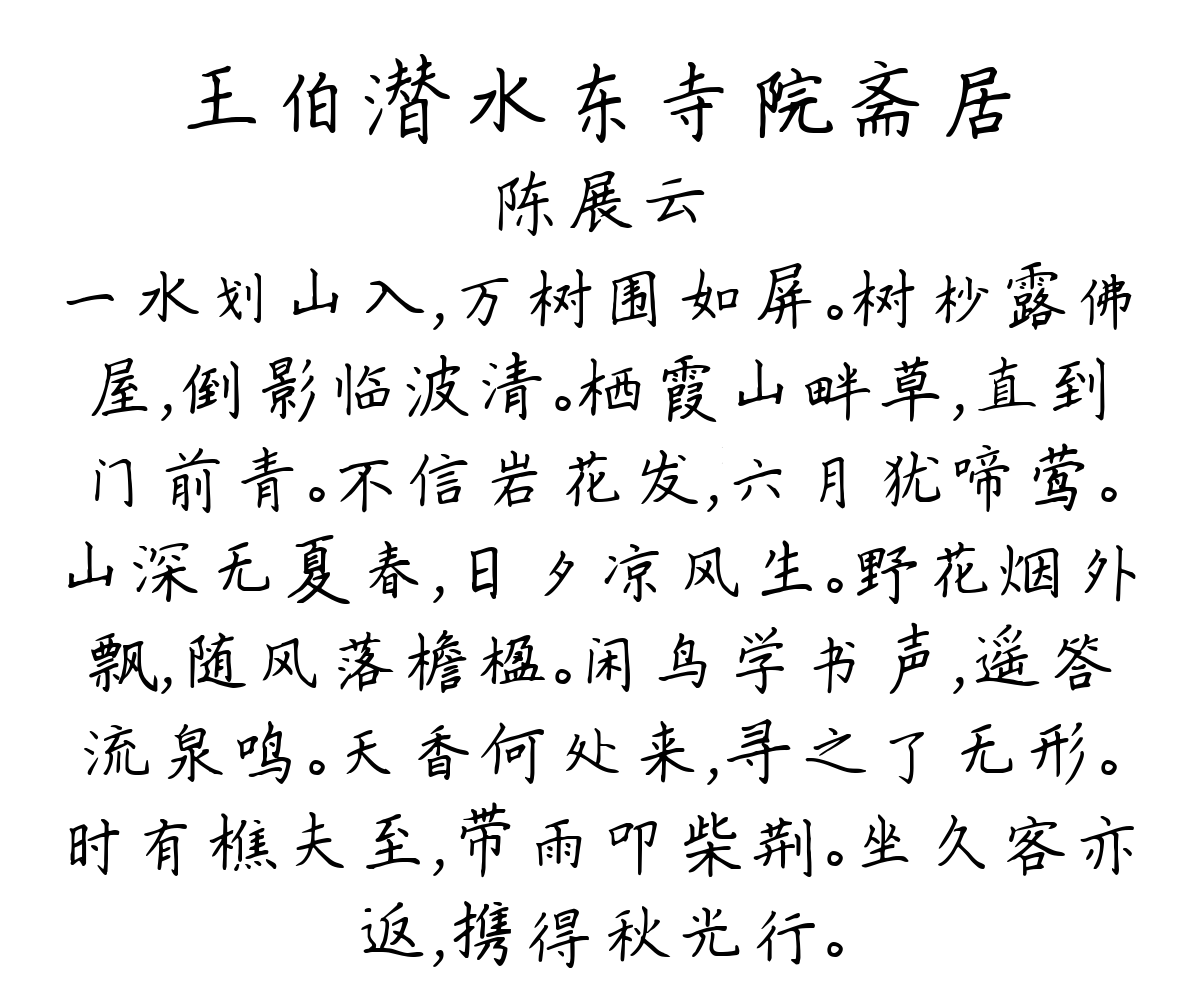 王伯潜水东寺院斋居
陈展云
一水划山入,万树围如屏。树杪露佛
屋,倒影临波清。栖霞山畔草,直到
门前青。不信岩花发,六月犹啼莺。
山深无夏春,日夕凉风生。野花烟外
飘,随风落檐楹。闲鸟学书声,遥答
流泉鸣。天香何处来,寻之了无形。
时有樵夫至,带雨叩柴荆。坐久客亦
返,携得秋光行。